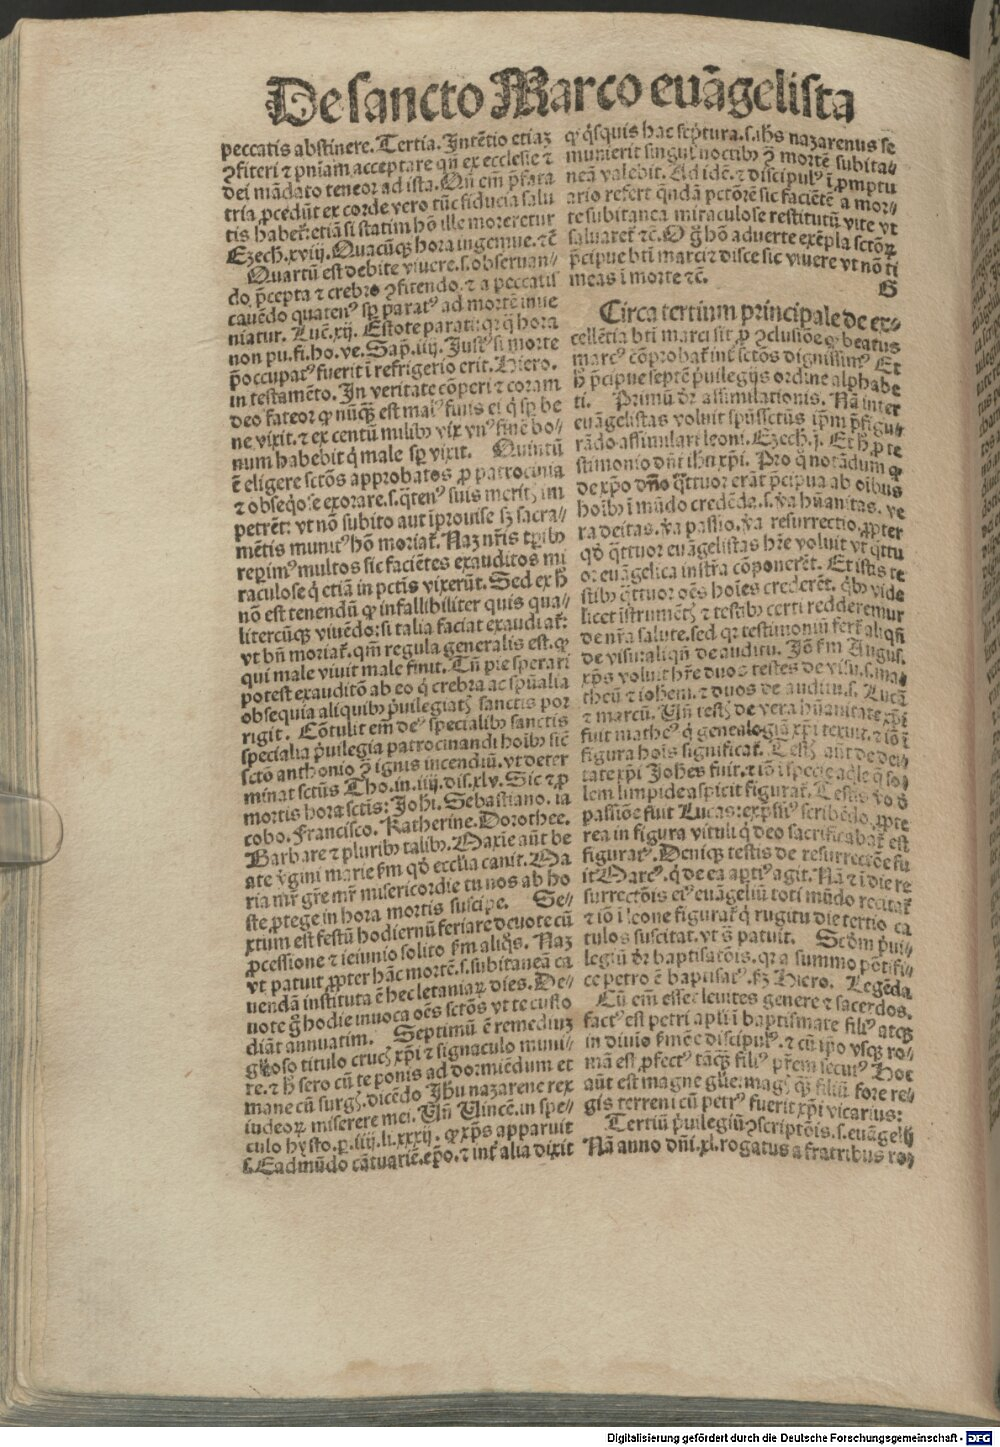 De sancto Marco euãgelista
peccatis abstinere. Tertia. Intẽtio etiaꝫ
ꝯfiteri ⁊ pniam acceptare qñ ex ecclesie ⁊
dei mãdato teneor ad ista. Qñ em̃ p̃fata
tria ꝓcedũt ex corde vero tũc fiducia salu
tis habet̃. etiã si statim hõ ille moreretur
Ezech. xviij. Quacũqꝫ hora ingemue. ⁊c̃
Quartũ est debite viuere. s. obseruan⸗
do p̃cepta ⁊ crebro ꝯfitendo. ⁊ a peccatis
cauẽdo quatenꝰ sꝑ paratꝰ ad mortẽ inue
niatur. Luc̃. xij. Estote parati: qꝛ q̃ hora
non pu. fi. ho. ve. Sap̃. iiij. Justꝰ si morte
p̃occupatꝰ fuerit ĩ refrigerio erit. Hiero.
in testamẽto. In veritate cõperi ⁊ coram
deo fateor ꝙ nũqꝫ est malꝰ finis ei q̃ sꝑ be
ne vixit. ⁊ ex centũ milibꝫ vix vnꝰ finẽ bo⸗
num habebit q̃ male sꝑ vixit. Quintũ
ẽ eligere sctõs approbatos ꝓ patrocinia
⁊ obseq̃ose exorare. s. q̃tenꝰ suis merit̃ im
petrẽt: vt nõ subito aut ĩprouise sꝫ sacra⸗
mẽtis munitꝰ hõ moriat̃. Naꝫ nr̃is tꝑibꝫ
reꝑimꝰ multos sic faciẽtes exauditos mi
raculose q̃ etiã in pctĩs vixerũt. Sed ex h̃
nõ est tenendũ ꝙ infallibiliter quis qua⸗
litercũqꝫ viuẽdo: si talia faciat exaudiat̃:
vt bñ moriat̃. qm̃ regula generalis est. ꝙ
qui male viuit male finit. Tñ pie sperari
potest exauditõ ab eo q̃ crebra ac spũalia
obsequia aliquibꝫ p̃uilegiat̃ sanctis por
rigit. Cõtulit em̃ deꝰ specialibꝫ sanctis
specialia p̃uilegia patrocinandi hoĩbꝫ sic̃
sctõ anthonio ꝯ̃ ignis incendiũ. vt deter
minat sctũs Tho. in. iiij. dis. xlv. Sic ⁊ ꝓ
mortis hora sctĩs: Johi. Sebastiano. ia
cobo. Francisco. Katherine. Dorothee.
Barbare ⁊ pluribꝫ talibꝫ. Maxie aũt be
ate v̓gini marie fm̃ qð eccl̃ia canit. Ma
ria mr̃ gr̃e mr̃ misericordie tu nos ab ho
ste ꝓtege in hora mortis suscipe. Se⸗
xtum est festũ hodiernũ feriare deuote cũ
ꝓcessione ⁊ ieiunio solito fm̃ aliq̃s. Naꝫ
vt patuit ꝓpter hãc mortẽ. s. subitaneã ca
uendã instituta ẽ hec letaniaꝝ dies. De⸗
uote g̃ hodie inuoca oẽs sctõs vt te custo
diãt annuatim. Septimũ ẽ remediuꝫ
gľoso titulo cruc̃ xp̃i ⁊ signaculo muni⸗
re. ⁊ h̃ sero cũ te ponis ad dormiẽdum et
mane cũ surg̃. dicẽdo Jhũ nazarene rex
iudeoꝝ miserere mei. Uñ Uincẽ. in spe⸗
culo hysto. ꝑ. iiij. li. xxxij. ꝙ xp̃s apparuit
s. Eadmũdo cãtuariẽ. ep̃o. ⁊ int̃ alia dixit
ꝙ q̃squis hac scp̃tura. s. ihs nazarenus se
munierit singul̃ noctibꝫ ꝯ̃ mortẽ subita⸗
neã valebit. Ad idẽ. ⁊ discipulꝰ ĩ ꝓmptu
ario refert quẽdã pctõrẽ sic faciẽtẽ a mor⸗
te subitanea miraculose restitutũ vite vt
saluaret̃ ⁊c̃. O g̃ hõ aduerte exẽpla sctõꝝ
p̃cipue bti marci ⁊ disce sic viuere vt nõ ti
meas ĩ morte ⁊c̃. G
Circa tertium principale de ex⸗
cellẽtia bti marci sit ꝓ ꝯclusiõe ꝙ beatus
marcꝰ cõprobat̃ int̃ sctõs dignissimꝰ Et
h̃ p̃cipue septẽ p̃uilegijs ordine alphabe
ti. Primũ dr̃ assimilationis. Nã inter
euãgelistas voluit spũssctũs ip̃m p̃figu⸗
rãdo assimilari leoni. Ezech. j. Et h̃ ꝓ te
stimonio dñi ihũ xp̃i. Pro q̃ notãdum ꝙ
de xp̃o dño q̃ttuor erãt p̃cipua ab oĩbus
hoĩbꝫ ĩ mũdo credẽda. s. ṽa hũanitas. ve
ra deitas. ṽa passio. ṽa resurrectio. ꝓpter
qð q̃ttuor euãgelistas hr̃e voluit vt q̃ttu
or euãgelica instr̃a cõponerẽt. Et istis te
stibꝫ q̃ttuor oẽs hoĩes crederẽt. q̃bꝫ vide
licet ĩstrumẽt̃ ⁊ testibꝫ certi redderemur
de nr̃a salute. sed qꝛ testimoniũ fert̃ aliqñ
de visu: aliqñ de auditu. Jõ fm̃ Augus.
xp̃s voluit hr̃e duos testes de visu. s. ma⸗
theũ ⁊ iohem. ⁊ duos de auditu. s. Lucã
⁊ marcũ. Uñ test̃ de vera hũanitate xp̃i
fuit matheꝰ q̃ genealogiã xp̃i texuit. ⁊ iõ ĩ
figura hoĩs significat̃. Test̃ aũt de dei⸗
tate xp̃i Johes fuit. ⁊ iõ ĩ specie aq̃le q̃ so⸗
lem limpide aspicit figurat̃. Testis ṽo ð
passiõe fuit Lucas: exp̃ssiꝰ scribẽdo. ꝓpte
rea in figura vituli q̃ deo sacrificabat̃ est
figuratꝰ. Deniqꝫ testis de resurrectõe fu
it Marcꝰ. q̃ de ea aꝑtiꝰ agit. Nã ⁊ ĩ die re
surrectõis eiꝰ euãgeliũ toti mũdo recitat̃
⁊ iõ ĩ leone figurat̃ q̃ rugitu die tertio ca
tulos suscitat. vt s̃ patuit. Scðm p̃ui⸗
legiũ dr̃ baptisatõis. qꝛ a summo põtifi⸗
ce petro ẽ baptisatꝰ. fm̃ Hiero. Legẽda
Cũ em̃ esset leuites genere ⁊ sacerdos.
factꝰ est petri apl̃i ĩ baptismate filiꝰ atqꝫ
in diuio ẽmõe discipulꝰ. ⁊ cũ ip̃o vsqꝫ ro⸗
mã est ꝓfectꝰ tãqꝫ filiꝰ pr̃em secutꝰ Hoc
aũt est magne gl̃ie. mag̃ qꝫ filiũ fore re⸗
gis terreni cũ petrꝰ fuerit xp̃i vicarius:
Tertiũ p̃uilegiũ ꝯscriptõis. s. euãgelij
Nã anno dñi. xl. rogatus a fratribus ro⸗
Digitalisierung gefördert durch die Deutsche Forschungsgemeinschaft - DFG